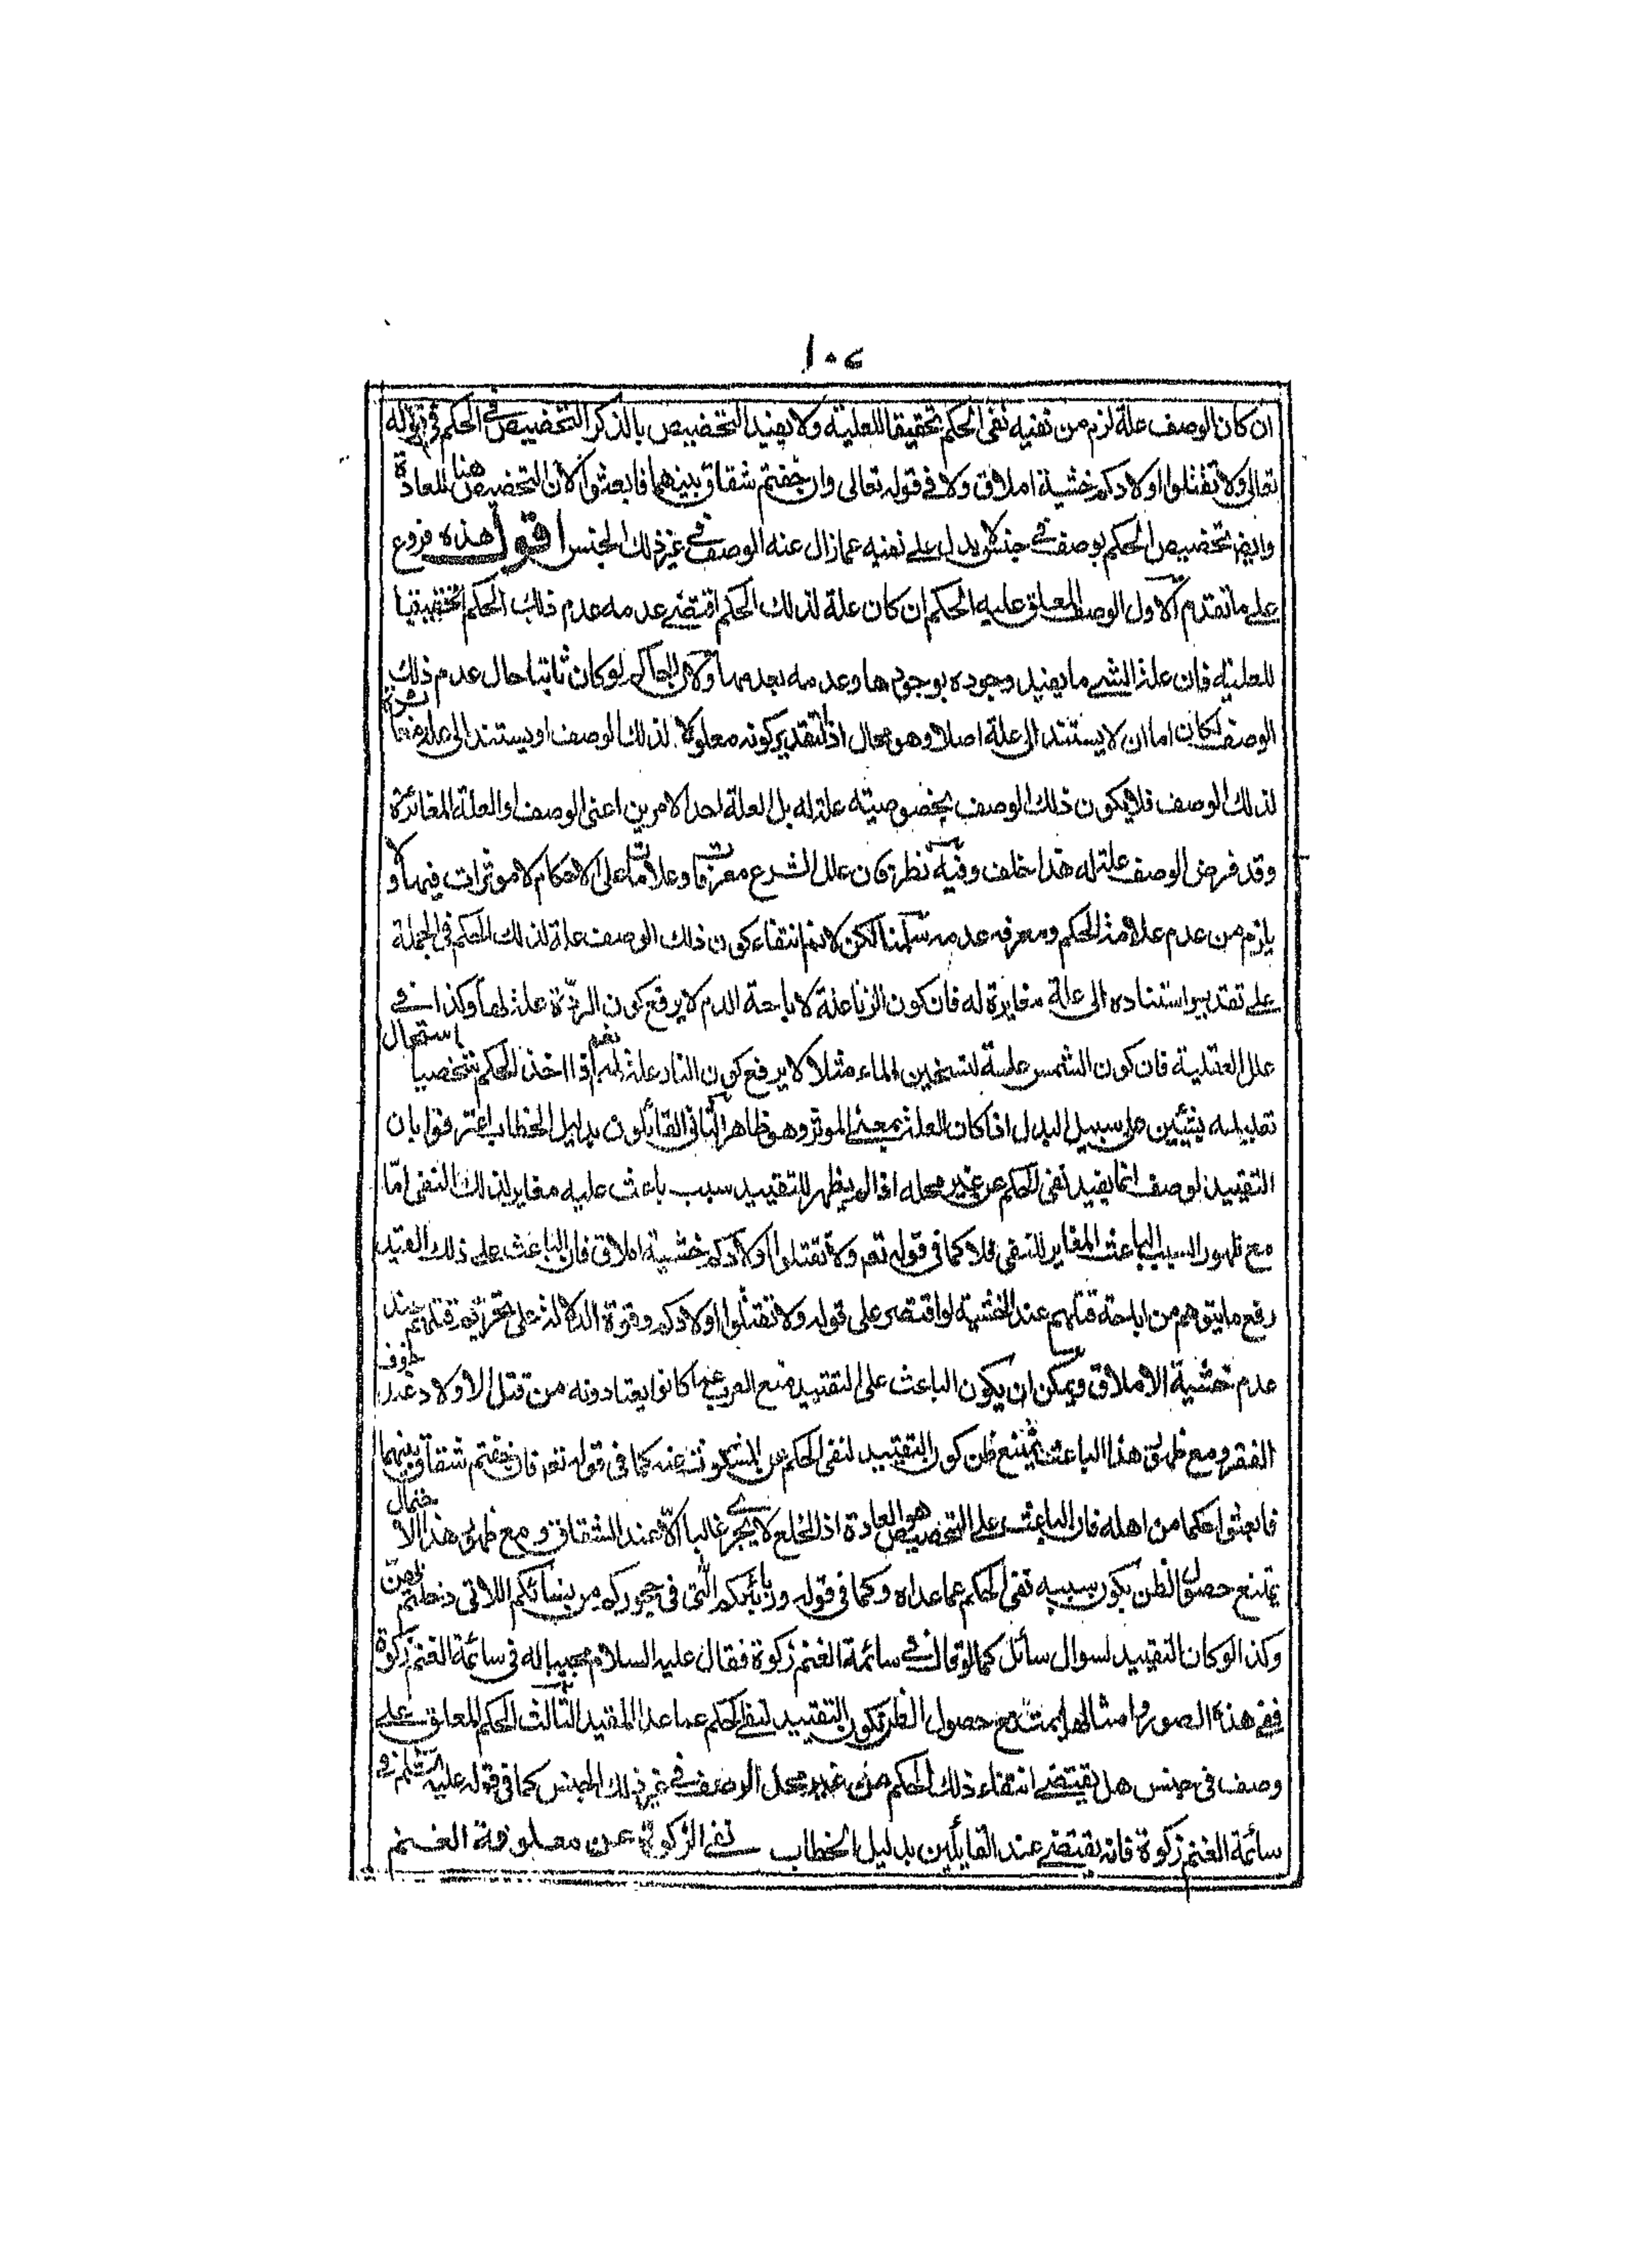 ١٠٤
ان كان الوصف علة لزم من نفيه نفى الحكم تحقيقا للعلية ولا يفيد التخصيص بالذكر التخصيص فى الحكم فى قوله
تعالى ولا تقتلوا اولادكم خشية املاق ولا فى قوله تعالى وان خفتم شقاق بينهما فابعثوا لان التخصيص هنا للعادة
وايضا تخصيص الحكم بوصف فى جنس لا يدل على نفيه عما زال عنه الوصف فى غير ذلك الجنس اقول هذه فروع
على ما تقدم الاول الوصف المعلق عليه الحكم ان كان علة لذلك الحكم اقتضى عدمه عدم ذلك الحكم تحقيقا
للعلية فان علة الشى ما يفيد وجوده بوجودها وعدمه بعدمها ولان الحكم لو كان ثابتا حال عدم ذلك
الوصف لكان اما ان لا يستند الى علة اصلا وهو محال اذ التقدير كونه معلولا لذلك الوصف او يستند الى علة مغايرة
لذلك الوصف فلا يكون ذلك الوصف بخصوصيته علة له بل العلة احد الامرين اعنى الوصف او العلة المغائرة
وقد فرض الوصف علة له هذا خلف وفيه نظر فان علل الشرع معرفات وعلامات على الاحكام لا موثرات فيها ولا
يلزم من عدم علامة الحكم ومعرفه عدمه سلمنا لكن لا نم انتفاء كون ذلك الوصف علة لذلك الحكم فى الجملة
على تقدير استناده الى علة مغايرة له فان كون الزنا علة لاباحة الدم لا يرفع كون الردة علة لها وكذا فى
علل العقلية فان كون الشمس علة لتسخين الماء مثلا لا يرفع كون النار علة له نعم اذا اخذ الحكم شخصيا استحال
تعليله بشيئين على سبيل البدل اذا كان العلة بمعنى الموثر وهو ظاهر الثانى القائلون بدليل الخطاب اعترفوا بان
التقييد لوصف انما يفيد نفى الحكم عن غير محله اذا لم يظهر للتقييد سبب باعث عليه مغاير لذلك النفى امّا
مع ظهور السبب الباعث المغاير للنفى فلا كما فى قوله تعه ولا تقتلوا اولادكم خشية املاق فان الباعث على ذلك القيد
رفع ما يتوهم من اباحة قتلهم عند الخشية لو اقتصر على قوله ولا تقتلوا اولادكم وقوة الدلالة على تحريم قتلهم عند
عدم خشية الاملاق ويمكن ان يكون الباعث على التقييد منع العرب عما كانوا يعتادونه من قتل الاولاد عند خوف
الفقر ومع ظهور هذا الباعث يمتنع ظن كون التقييد لنفى الحكم عن المسكوت عنه كما فى قوله تعه فان خفتم شقاق بينهما
فابعثوا حكما من اهله فان الباعث على التخصيص هو العادة اذ الخلع لا يجرى غالبا الا عند الشقاق ومع ظهور هذا الاحتمال
يمتنع حصول الظن بكون سببه نفى الحكم عما عداه وكما فى قوله وربائبكم التى فى حجوركم من نسائكم اللاتى دخلتم بهن
وكذا لو كان التقييد لسوال سائل كما لو قال فى سائمة الغنم زكوة فقال عليه السلام مجيبا له فى سائمة الغنم زكوة
ففى هذه الصور وامثالها يمتنع حصول الظن بكون التقييد لنفى الحكم عما عدا المقيد الثالث الحكم المعلق على
وصف فى جنس هل يقتضى انتفاء ذلك الحكم عن غير محل الوصف فى غير ذلك الجنس كما فى قوله عليه السلم فى
سائمة الغنم زكوة فانه يقتضى عند القايلين بدليل الخطاب نفى الزكوة عن معلوفة الغنم